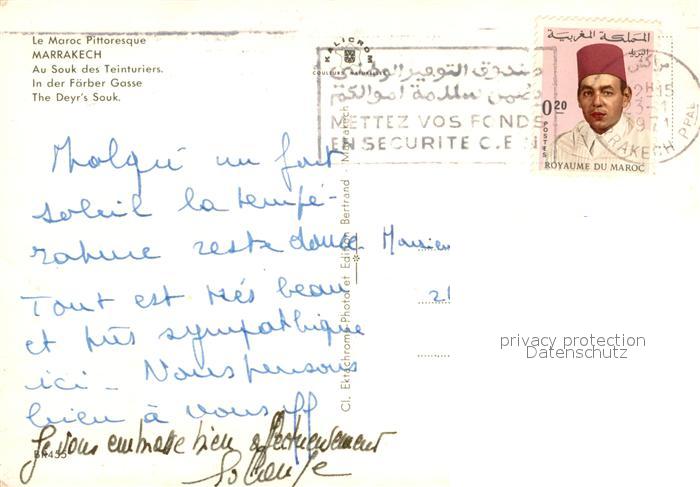 Le Maroc Pittoresque
MARRAKECH
Au Souk des Teinturiers.
In der Färber Gasse
The Deyr's Souk.
KALICROM
COULEURS NATURELLES
صندوق التوفير الوطني
يضمن سلامة أموالكم
METTEZ VOS FONDS
EN SECURITE C.E.N
المملكة المغربية
البريد
0.20
POSTES
ROYAUME DU MAROC
مراكش
12H15
1971
MARRAKECH PPAL
Malgré un fort
soleil la tempé-
rature reste douce.
Tout est très beau
et très sympathique
ici – Nous pensons
bien à vous
Je vous embrasse bien affectueusement
Cl. Ektachrome Photo et Edition Bertrand - Marrakech
BR455
21
privacy protection
Datenschutz